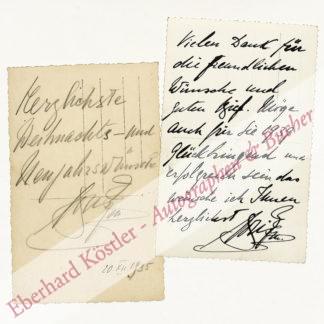 Herzlichste
Weihnachts- und
Neujahrswünsche
20. XII. 1955
Vielen Dank für
die freundlichen
Wünsche und
guten Brief. Möge
auch für Sie
Glückbringend und
erfolgreich sein das
wünsche ich Ihnen
herzlichst
Eberhard Köstler - Autographen & Bücher